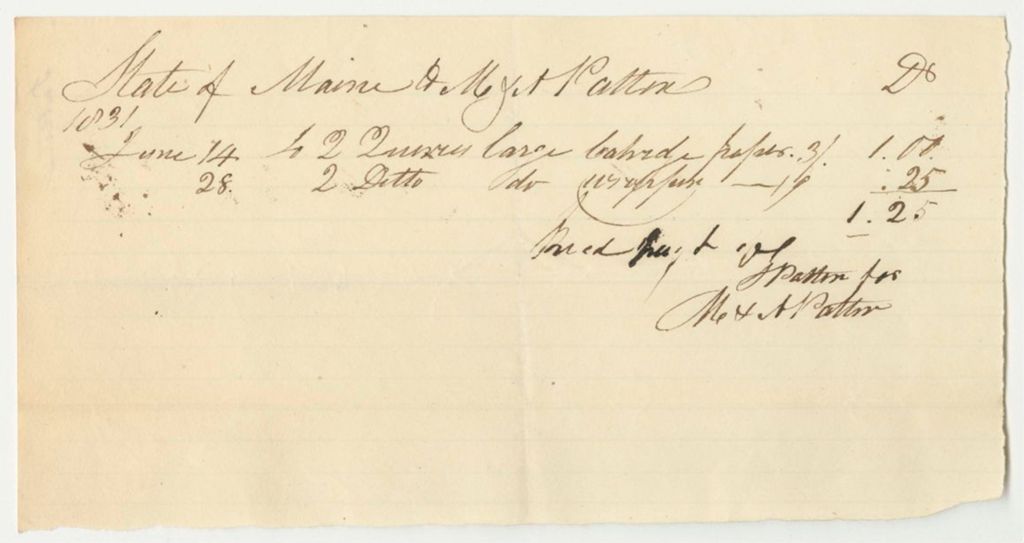 State of Maine to M & A Patton Dr
1831
June 14. to 2 Quires large paper. 3/. 1.00.
28. 2 Ditto do wrapping — 1/6 .25
1.25
Recd payt
J Patton for
M & A Patton